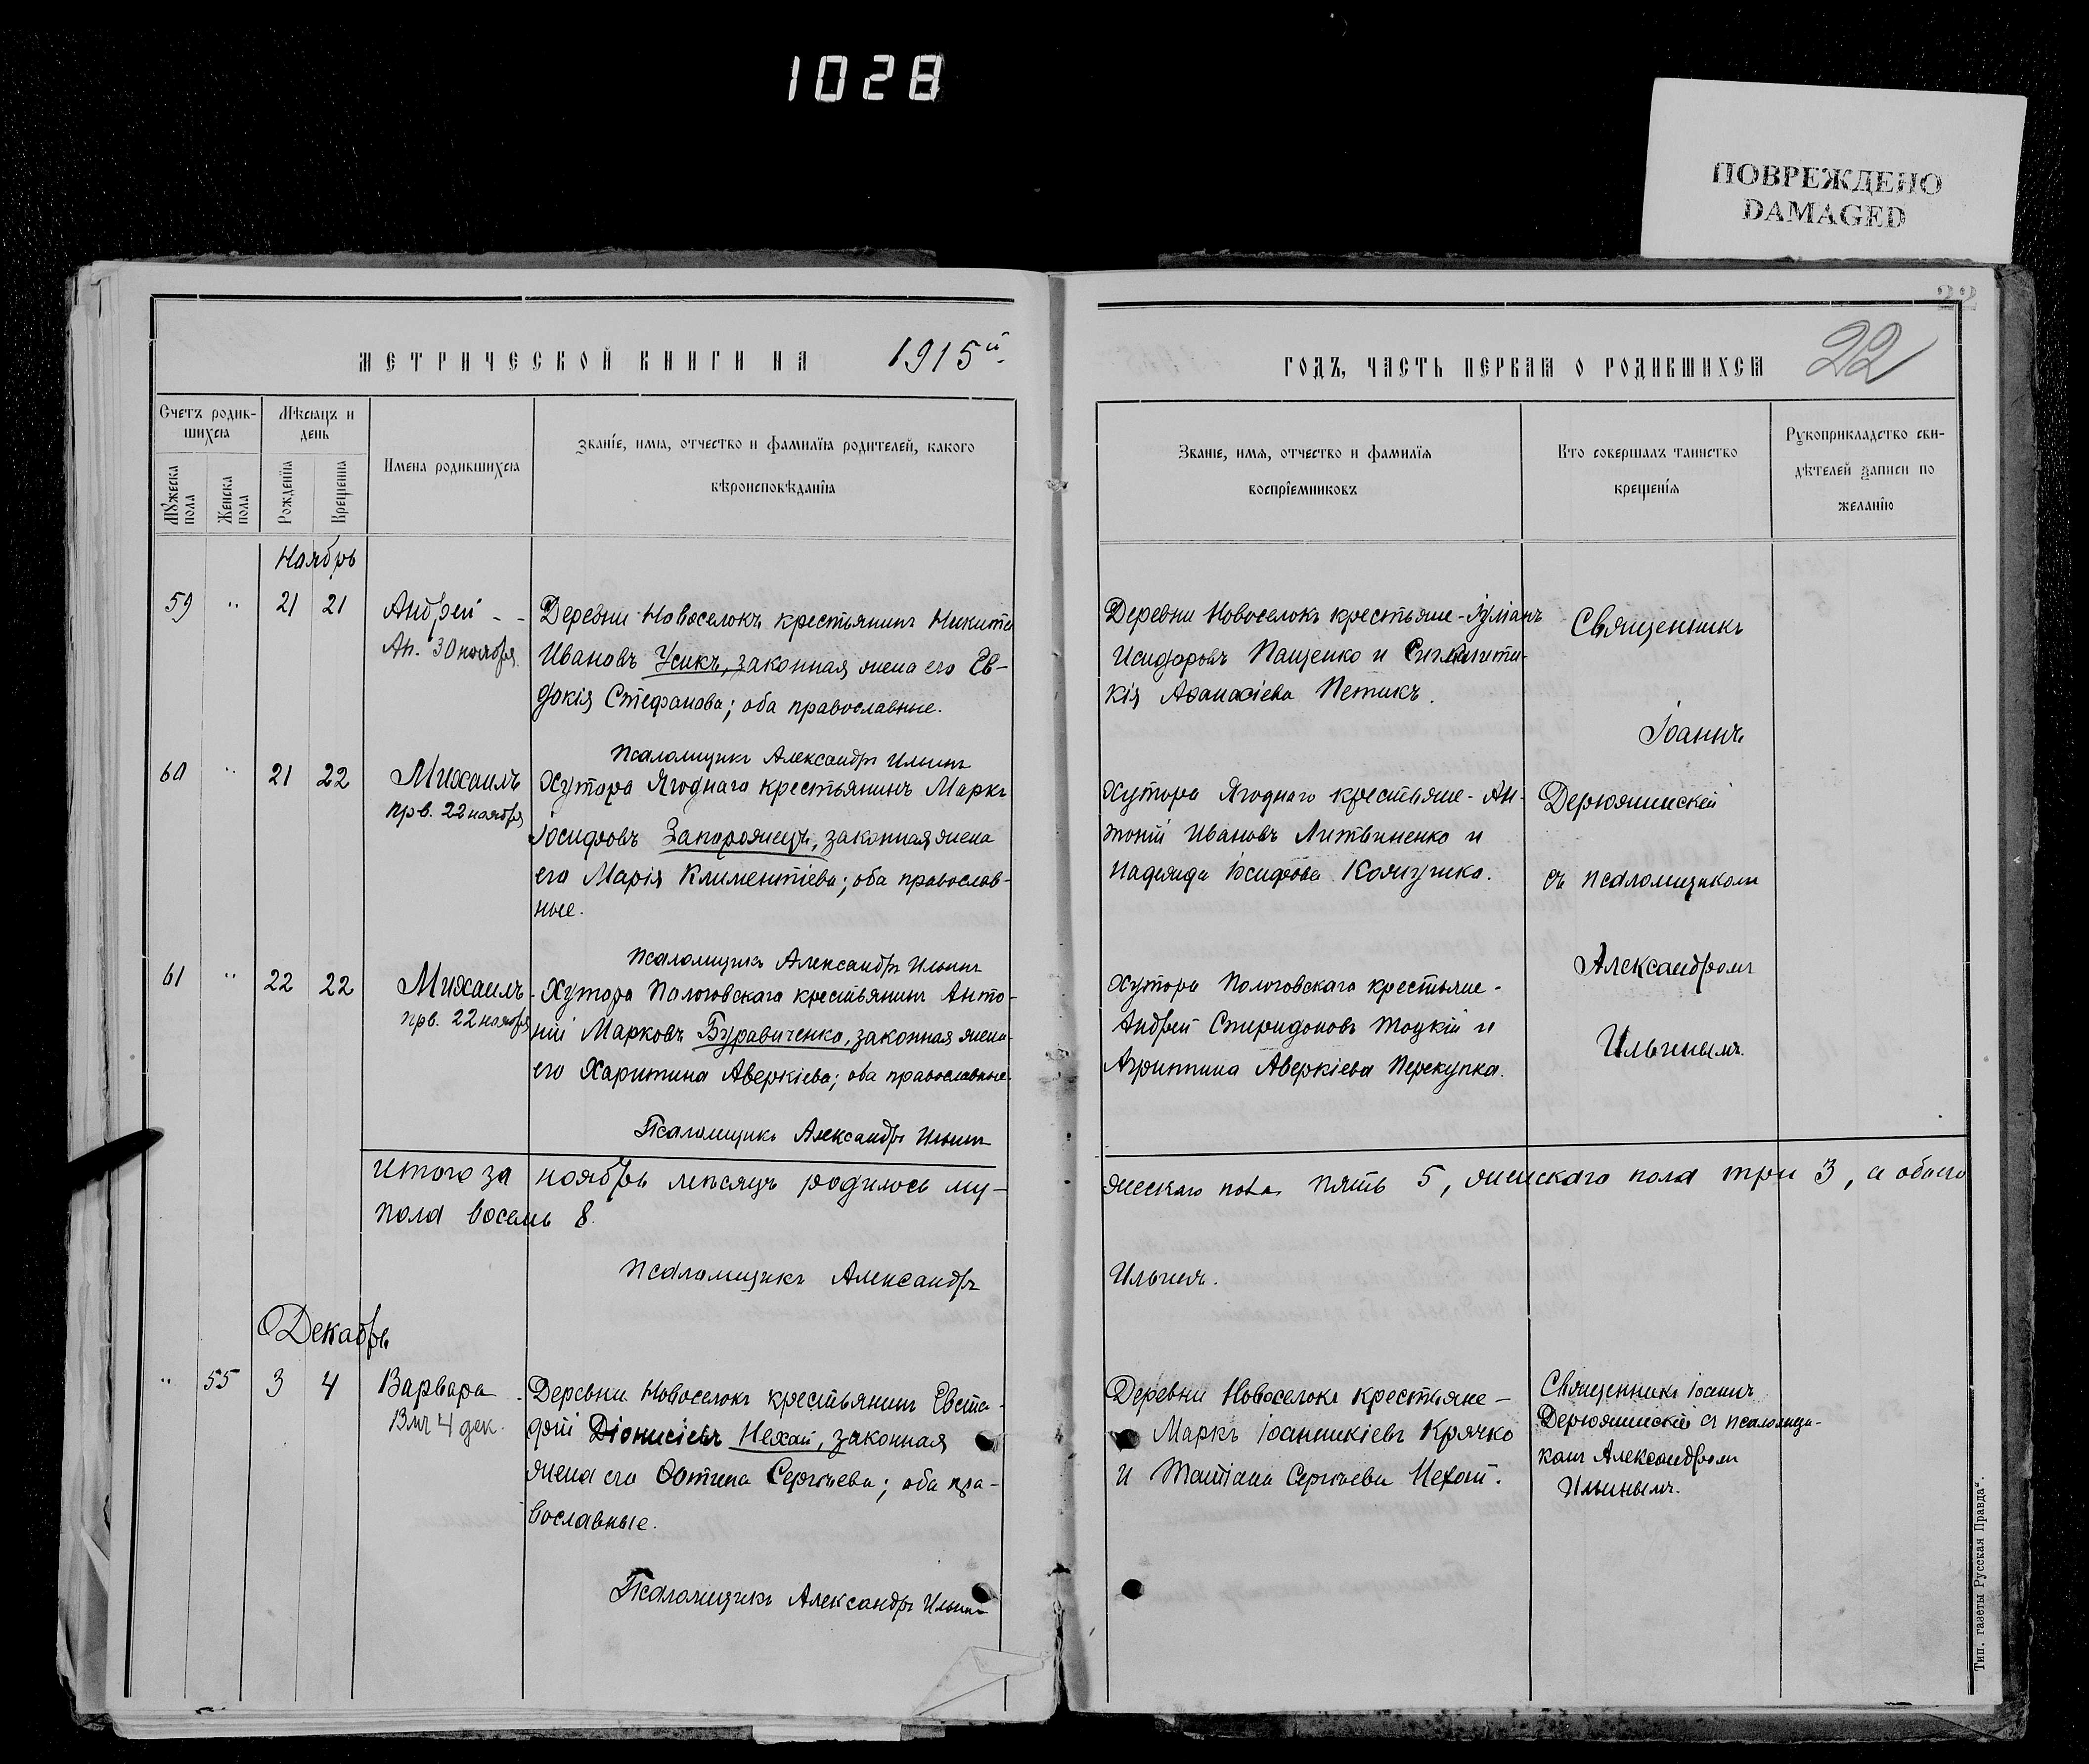 1028
ПОВРЕЖДЕНО
DAMAGED
22
МЕТРИЧЕСКОЙ КНИГИ НА 1915й
ГОДЪ, ЧАСТЬ ПЕРВАЯ О РОДИВШИХСЯ 22
Счетъ родив-
шихся
Мѣсяцъ и
день
Мужеска
пола
Женска
пола
Рожденія
Крещенія
Имена родившихся
Званіе, имя, отчество и фамилія родителей, какого
вѣроисповѣданія
Званіе, имя, отчество и фамилія
воспріемниковъ
Кто совершалъ таинство
крещенія
Рукоприкладство сви-
дѣтелей записи по
желанію
Ноябрь
59 " 21 21 Андрей - -
Ап. 30 ноября.
Деревни Новоселокъ крестьянинъ Никита
Ивановъ Усикъ, законная жена его Ев-
докія Стефанова; оба православные.
Псаломщикъ Александръ Ильинъ
Деревни Новоселокъ крестьяне - Іуліанъ
Исидоровъ Пащенко и
кія Аѳанасіева Петикъ.
60 " 21 22 Михаилъ
прв. 22 ноября
Хутора Ягоднаго крестьянинъ Маркъ
Іосифовъ Запорожецъ, законная жена
его Марія Климентіева; оба православ-
ные.
Псаломщикъ Александръ Ильинъ
Хутора Ягоднаго крестьяне - Ан-
тоній Ивановъ Литвиненко и
Надежда Іосифова
61 " 22 22 Михаилъ -
прв. 22 ноября
Хутора Пологовскаго крестьянинъ Анто-
ній Марковъ Буравиченко, законная жена
его Харитина Аверкіева; оба православные.
Псаломщикъ Александръ Ильинъ
Хутора Пологовскаго крестьяне -
Андрей Спиридоновъ Тоцкій и
Агриппина Аверкіева Перекупка.
Священникъ
Іоаннъ
Держжинскій
съ псаломщикомъ
Александромъ
Ильинымъ.
Итого за ноябрь мѣсяцъ родилось му-
жескаго пола пять 5, женскаго пола три 3, а обоего
пола восемь 8.
Псаломщикъ Александръ
Ильинъ.
Декабрь
" 55 3 4 Варвара -
Вмч 4 дек.
Деревни Новоселокъ крестьянинъ Евста-
фій Діонисіевъ Нехай, законная
жена его Фотина Сергѣева; оба пра-
вославные.
Псаломщикъ Александръ Ильинъ
Деревни Новоселокъ крестьяне -
Маркъ Іоанникіевъ Крячко
и Татіана Сергѣева Нехай.
Священникъ Іоаннъ
съ псаломщи-
комъ Александромъ
Ильинымъ.
Тип. газеты Русская Правда".